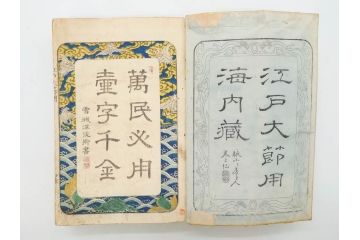 江戸大節用
海内蔵
萬民必用
壹字千金